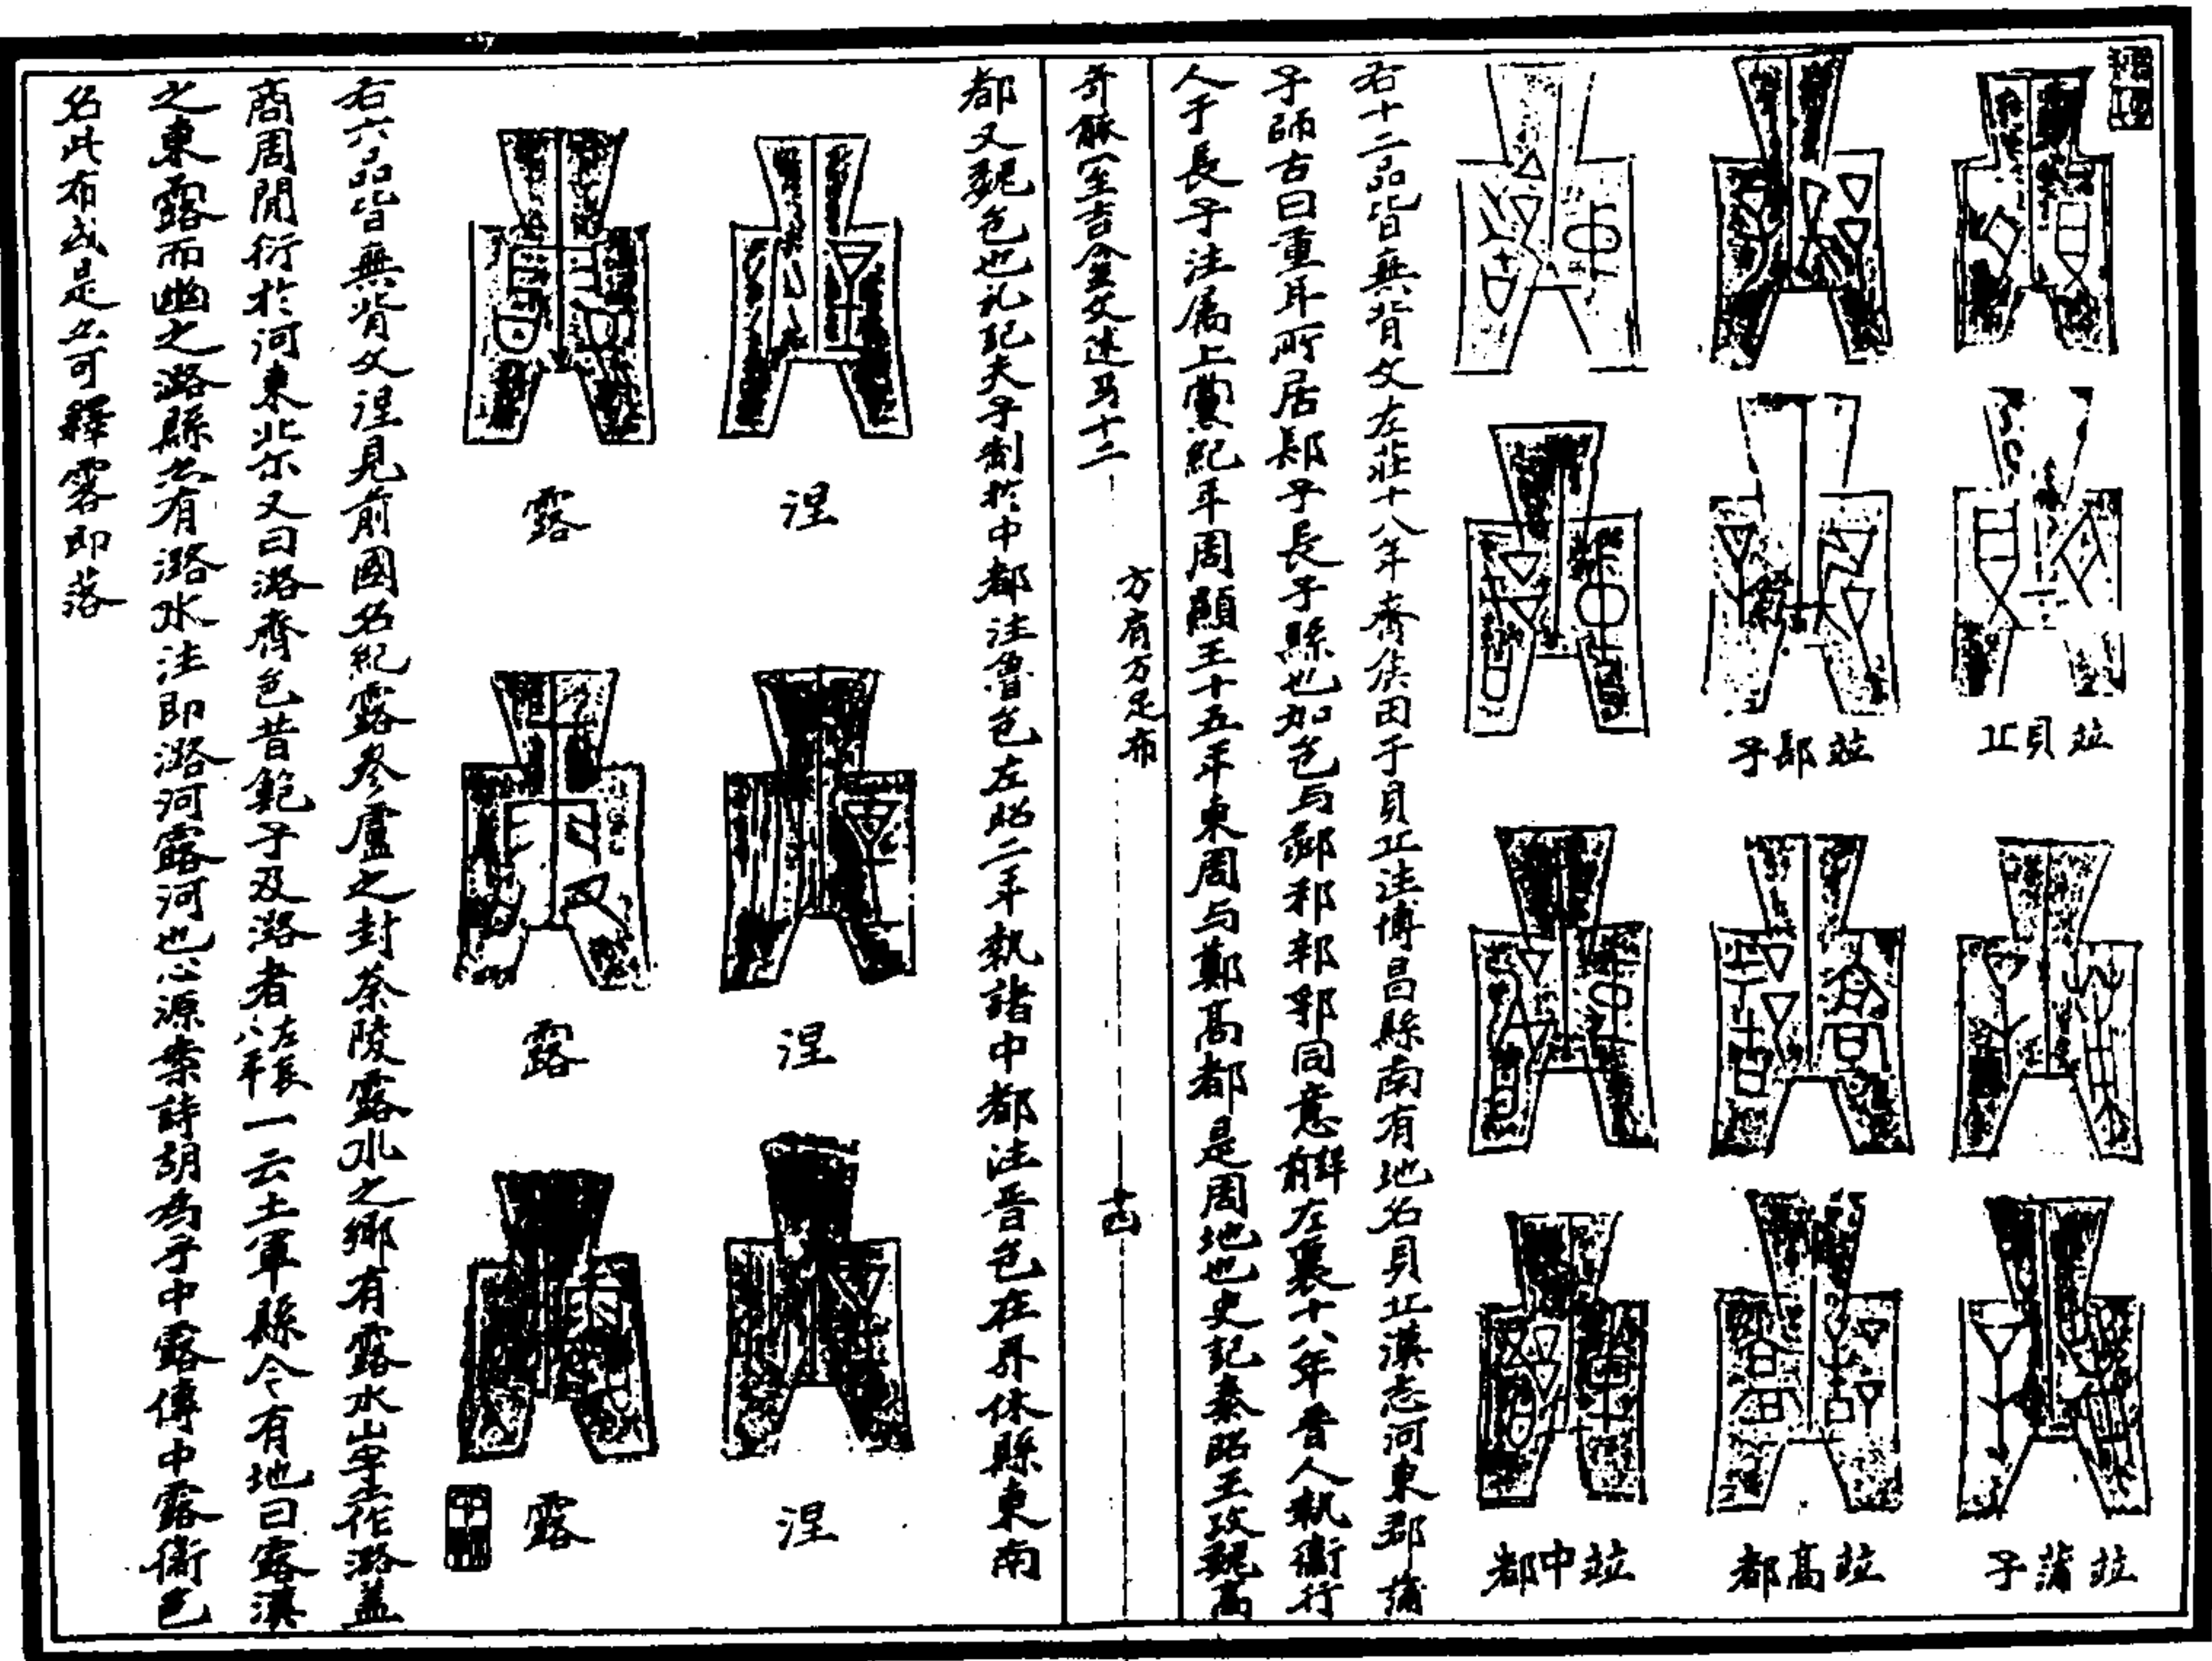 竝貝丘
竝郻子
竝蒲子
竝高都
竝中都
右十二品皆無背文左莊十八年齊侯田于貝丘注博昌縣南有地名貝丘漢志河東郡蒲
子師古曰重耳所居郻子長子縣也如邑与鄒邾邦郭同意觧左襄十八年晋人執衞行
人于長子注属上黨紀年周顯王十五年東周与鄭髙都是周地也史記秦昭王攻魏髙
奇觚室吉金文述弓十二
方肩方足布
十四
都又魏邑也礼記夫子制於中都注魯邑左昭二年執諸中都注晋邑在界休縣東南
涅
涅
涅
露
露
露
右六品皆無背文涅見前國名紀露參盧之封茶陵露水之鄉有露水山字亦作潞盖
商周閒衍於河東北尓又曰潞齊邑昔範子及潞者左哀八年一云土軍縣今有地曰露漢
之東露而幽之潞縣亦有潞水注即潞河露河也心源案詩胡為乎中露傳中露衞邑
名此布或是亦可釋雺即落